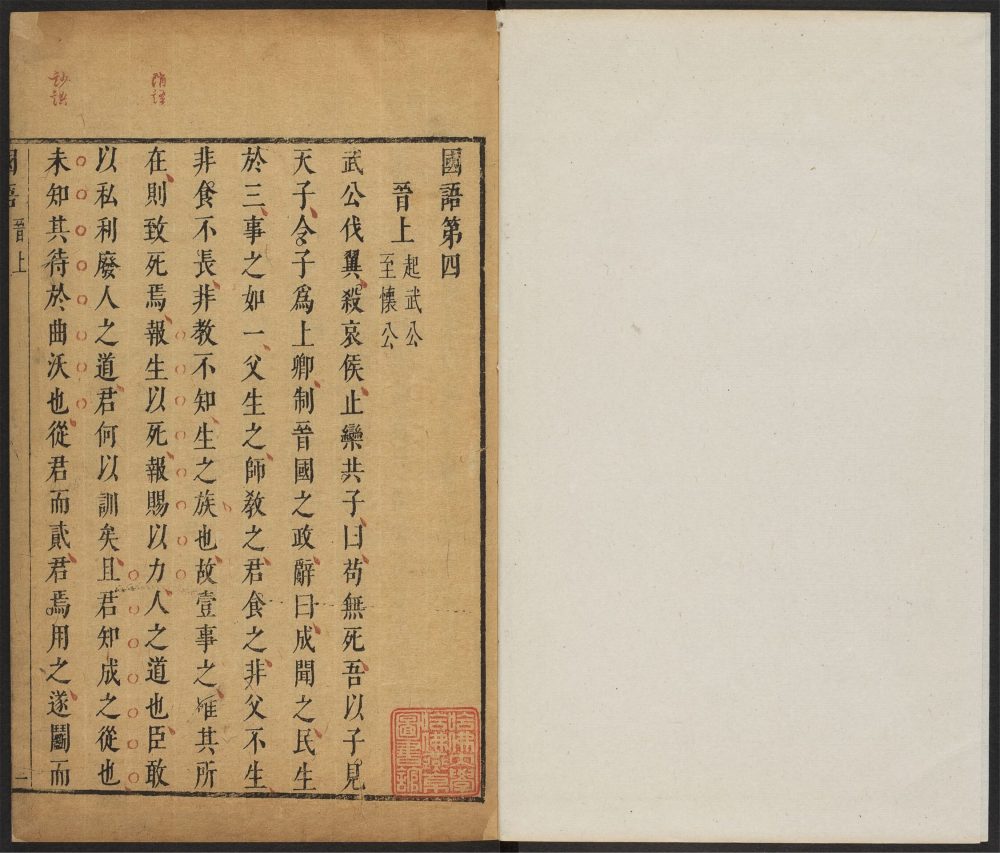 國語第四
晉上 起武公
至懷公
武公伐翼殺哀侯止欒共子曰苟無死吾以子見
天子令子爲上卿制晉國之政辭曰成聞之民生
於三事之如一父生之師教之君食之非父不生
非食不長非教不知生之族也故壹事之唯其所
在則致死焉報生以死報賜以力人之道也臣敢
以私利廢人之道君何以訓矣且君知成之從也
未知其待於曲沃也從君而貳君焉用之遂鬭而
國語 晉上
一
哈佛大學
哈佛燕京
圖書館